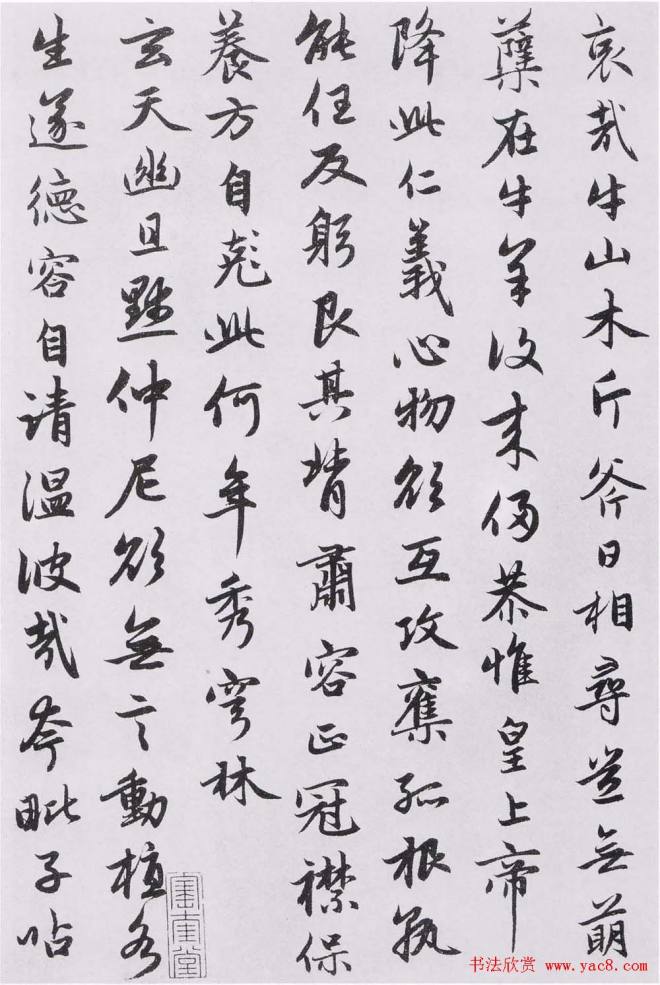 哀哉牛山木斤斧日相尋豈無萌
蘖在牛羊復來侵恭惟皇上帝
降此仁義心物欲互攻奪孤根孰
能任反躬艮其背肅容正冠襟保
養方自此何年秀穹林
玄天幽且默仲尼欲無言動植各
生遂德容自清温彼哉夸毗子呫
书法欣赏 www.yac8.com